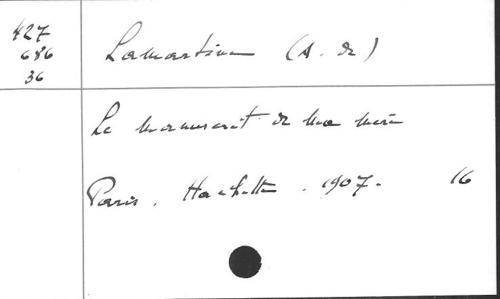 427
686
36
Lamartine (A. de)
Le manuscrit de ma mère
Paris. Hachette. 1907. 16